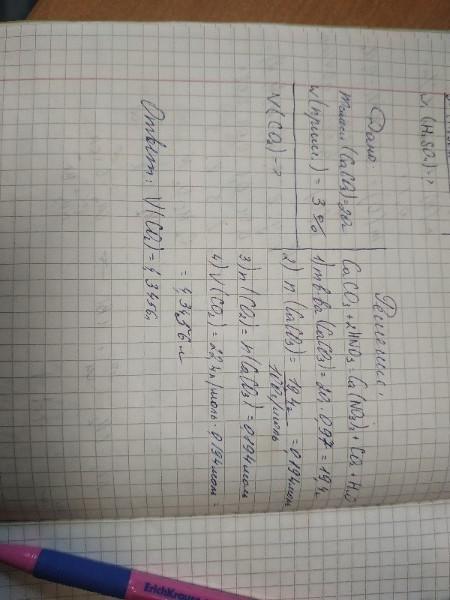 ν (H₂SO₄)-?
Дано:
m смеси (CaCO₃)=20г
w(примес.) = 3%
V(CO₂)-?
Решение:
CaCO₃+2HNO₃=Ca(NO₃)₂+CO₂+H₂O
1) m в-ва (CaCO₃)=20·0,97=19,4г
2) n (CaCO₃) = 19,4г / 100г/моль = 0,194моль
3) n (CO₂)= n(CaCO₃)=0,194моль
4) V(CO₂)=22,4л/моль·0,194моль=
= 4,3456 л
Ответ: V(CO₂)=4,3456л
ErichKrause